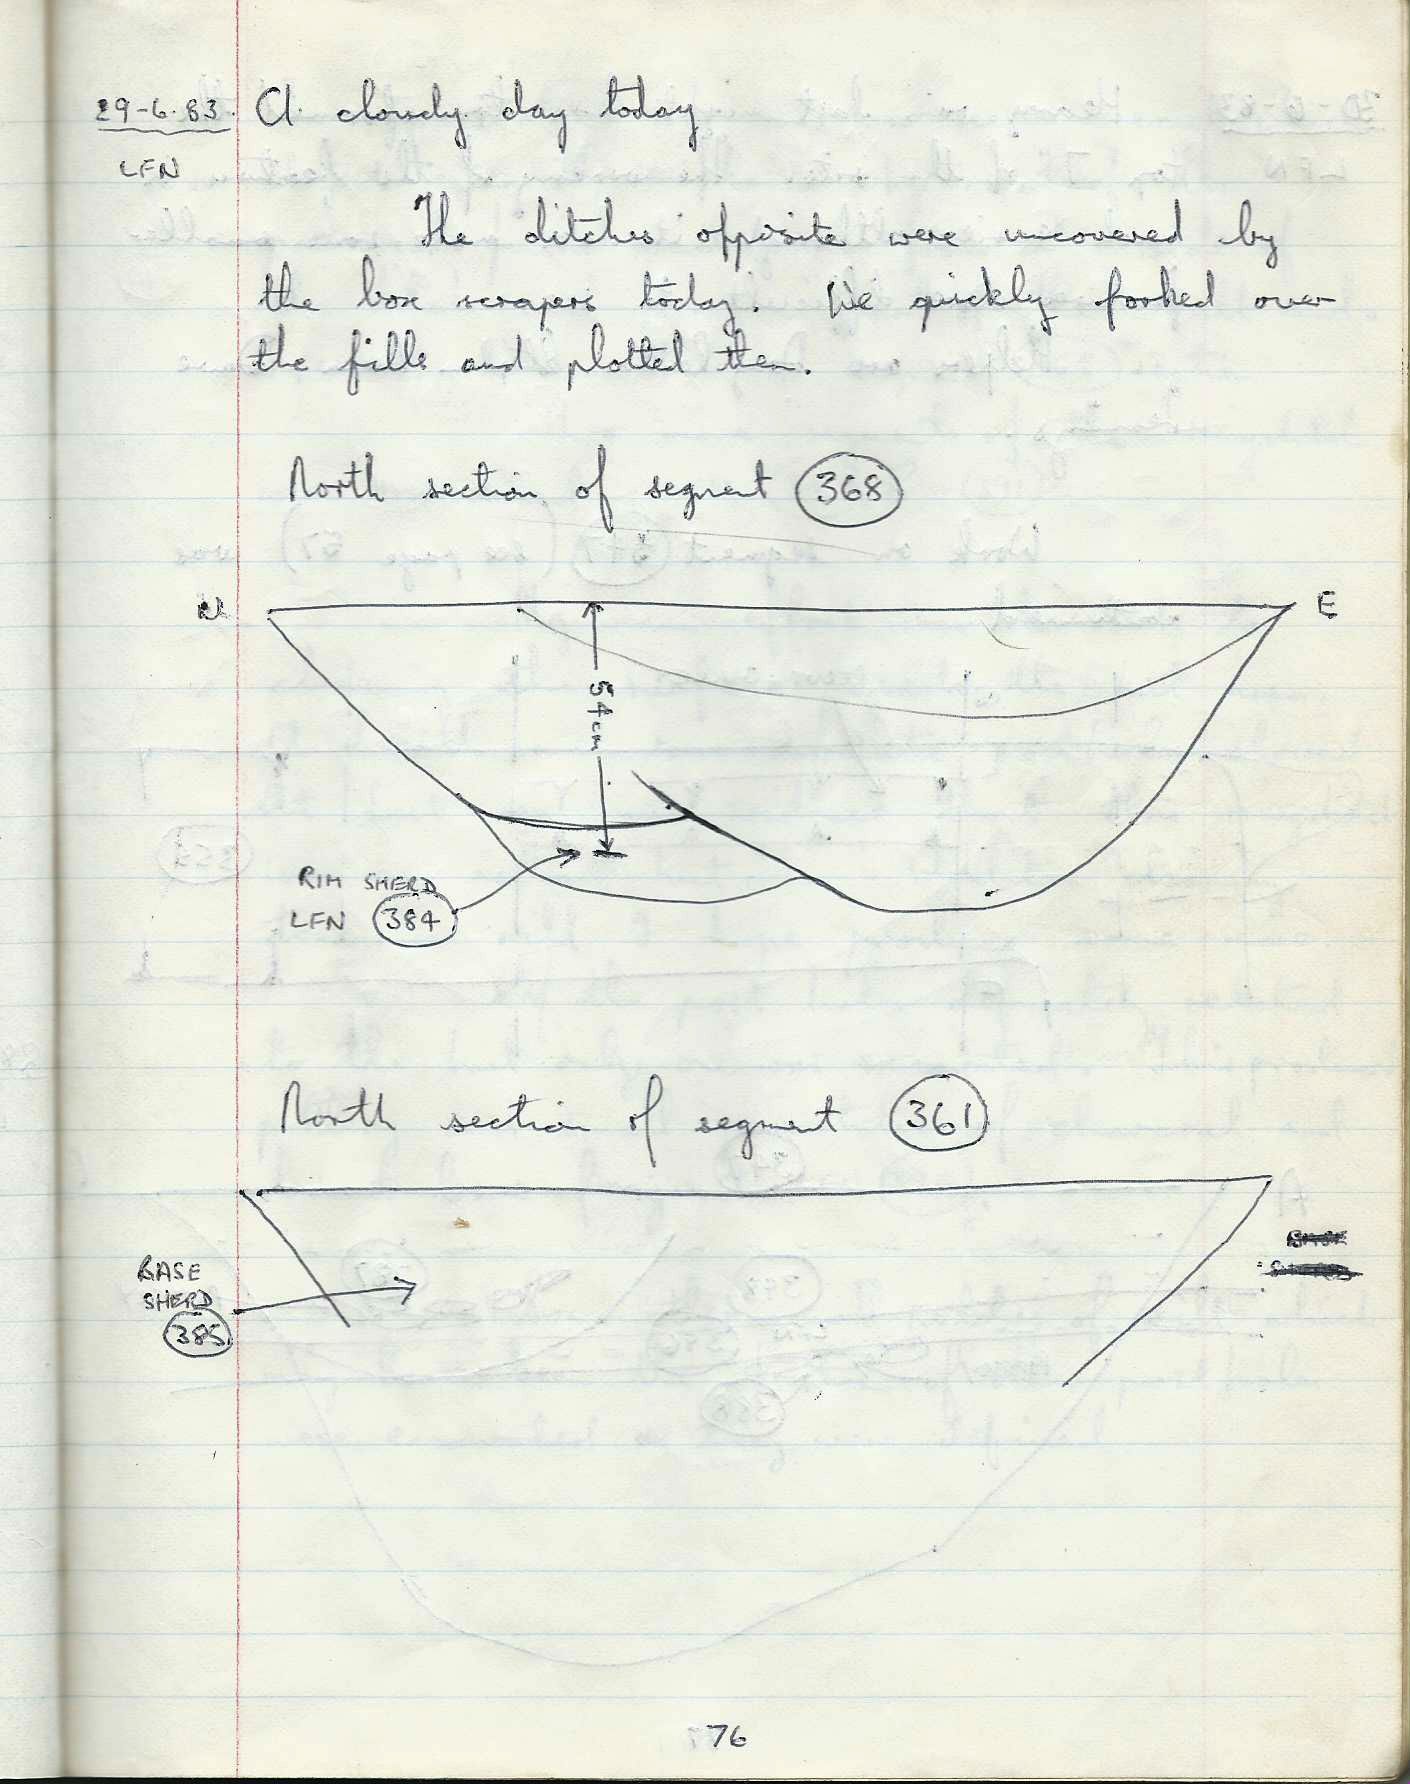 29-6-83. A cloudy day today
LFN
The ditches opposite were uncovered by
the box scrapers today. We quickly forked over
the fills and plotted them.
North section of segment 368
W E
54cm
RIM SHERD
LFN 384
North section of segment 361
BASE
SHERD
385
76